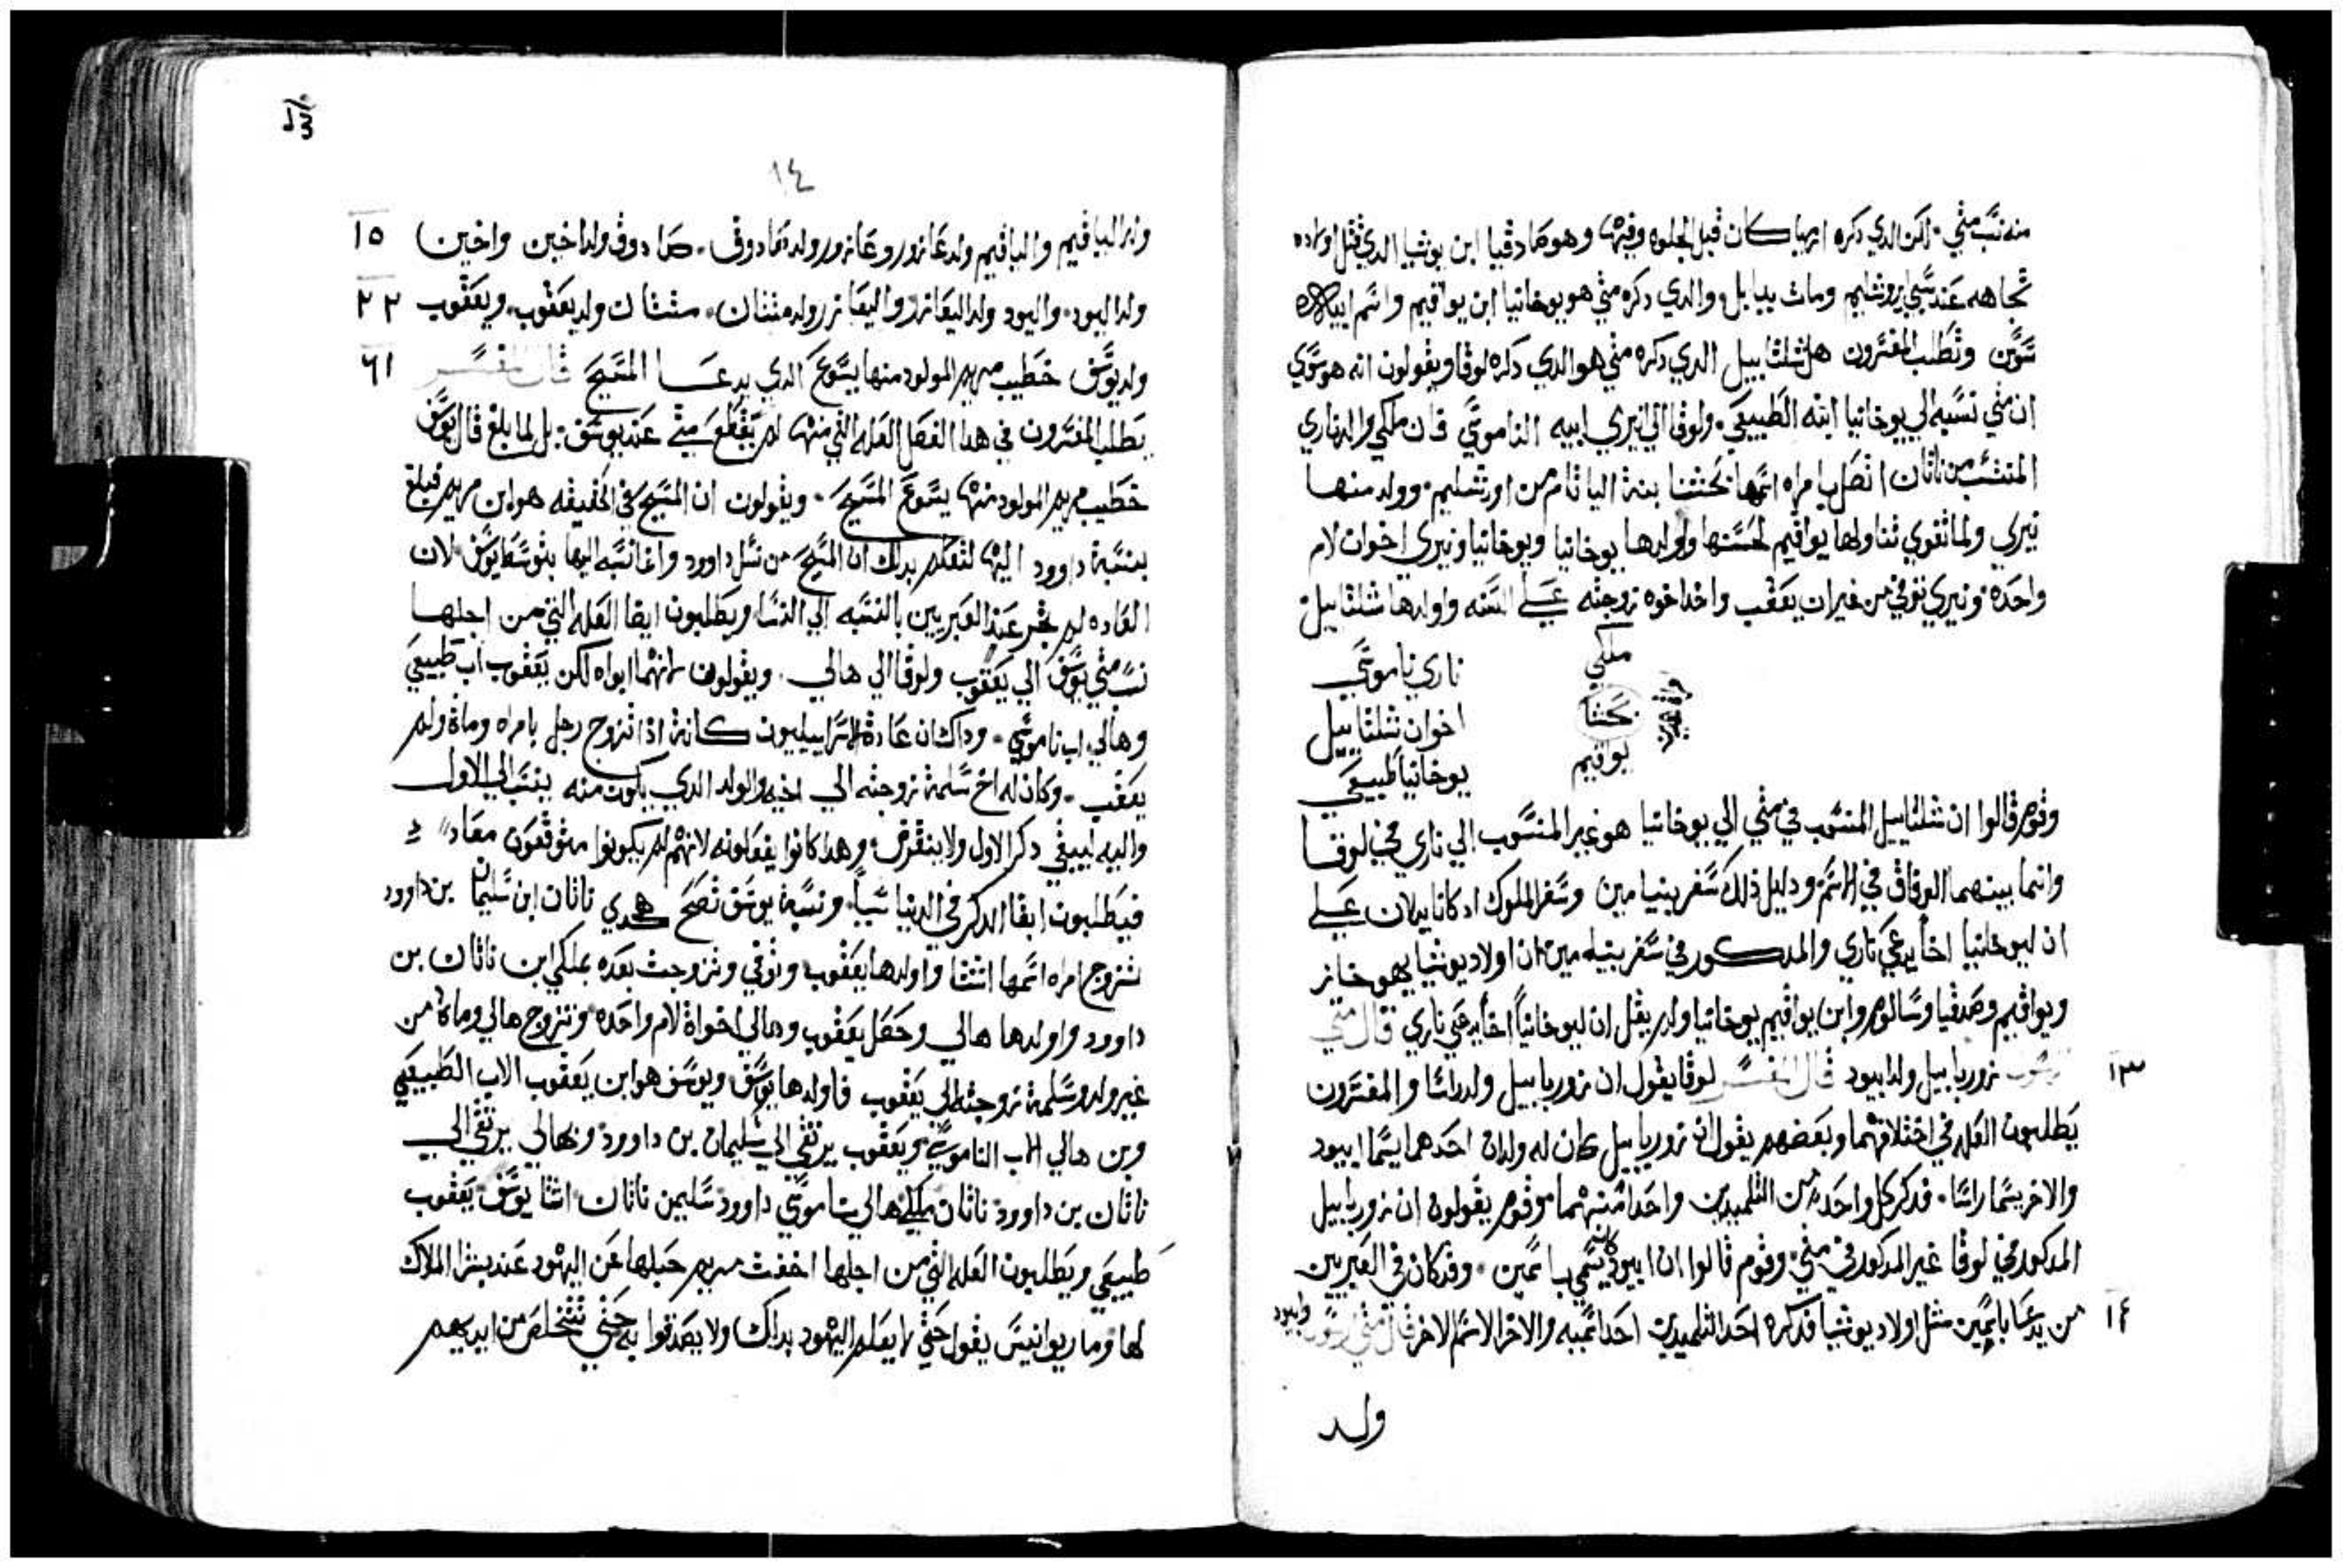 منه نسب متي. لكن الذي دكره ارميا كان قبل الجلوه وفيها وهو صادقيا ابن يوشيا الدي قتل اولاده
تجاهه عند سبي اورشليم ومات ببابل والدي دكره متي هو يوخانيا ابن يواقيم واسم ابيلاه
سوسن وتطلب المفسرون هل شلتاييل الدي دكره متي هو الدي دكره لوقا ويقولون انه هو سوي
ان متي نسبه الي يوخانيا ابنه الطبيعي. ولوقا الي نيري ابيه الناموسي فان ملكي والد ناري
المنتسب من ناثان اتصل بامراه اسمها نحشتا بنة الياثام من اورشليم. وولد منها
نيري ولما توفي تناولها يواقيم لحسنها واولدها يوخانيا ويوخانيا ونيري اخوان لام
واحده ونيري توفي من غير ان يعقب واخد اخوه زوجته علي السنه واولدها شلتاييل
ملكي ناري ناموسي
نحشتا اخوان شلتاييل
يواقيم يوخانيا طبيعي
وقوم قالوا ان شلتاييل المنسوب في متي الي يوخانيا هو غير المنسوب الي ناري في لوقا
وانما بينهما الوفاق في الاسم ودليل ذلك سفر بنيامين وسفر الملوك اد كانا يدلان علي
ان ليوخانيا اخاً يدعي ناري والمدكور في سفر بنيامين ان اولاد يوشيا يهوخاز
ويواقيم وصدقيا وسالوم وابن يواقيم يوخانيا ولم يقل ان ليوخانيا اخاً يدعي ناري قال متي
١٣ زوربابيل ولد ابيود قال المفسر لوقا يقول ان زوربابيل ولد راسا والمفسرون
يطلبون العله في اختلافهما وبعضهم يقول ان زوربابيل كان له ولدان احدهما يسما ابيود
والاخر يسما راسا. فدكر كل واحد من التلميدين واحداً منهما وقوم يقولون ان زوربابيل
المدكور في لوقا غير المدكور في متي. وقوم قالوا ان ابيود كان يسمي باسمين. وقد كان في العبريين
١٤ من يدعا باسمين مثل اولاد يوشيا فدكره احد التلميدين احد اسميه والاخر الاسم الاخر قال متي وابيود
ولد
١٤
ولد الياقيم والياقيم ولد عازور وعازور ولد صادوق. صادوق ولد اخين واخين ١٥
ولد اليود. واليود ولد اليعازر واليعازر ولد متثان. متثان ولد يعقوب. ويعقوب ٢٢
ولد يوسف خطيب مريم المولود منها يسوع الدي يدعا المسيح قال المفسر ٦١
يطلب المفسرون في هدا الفصل العله التي منها لم يقطع متي عند يوسف. بل لما بلغ قال يوسف
خطيب مريم المولود منها يسوع المسيح. ويقولون ان المسيح في الحقيقه هو ابن مريم فبلغ
بنسبة داوود اليها لتعلم بدلك ان المسيح من نسل داوود وانما نسبه اليها بتوسط يوسف لان
العاده لم تجر عند العبريين بالنسبه الي النسا ويطلبون ايضا العله التي من اجلها
نسب متي يوسف الي يعقوب ولوقا الي هالي. ويقولون انهما ابواه لكن يعقوب اب طبيعي
وهالي اب ناموسي. وداك ان عادة الاسراييليون كانة ادا تزوج رجل بامراه وماة ولم
يعقب. وكان له اخ سلمة زوجته الي اخيه والولد الدي يكون منه ينسب الي الاول
واليه ليبقي دكر الاول ولا ينقرض. وهدا كانوا يفعلونه لانهم لم يكونوا متوقعون معاد
فيطلبون ابقا الدكر في الدنيا شياً. ونسبة يوسف تصح هكدي ناثان ابن سليمان بن داوود
تزوج امراه اسمها استثا واولدها يعقوب وتوفي وتزوجت بعده بملكي ابن ناثان بن
داوود واولدها هالي وحصل يعقوب وهالي اخواة لام واحده وتزوج هالي وماة من
غير ولد وسلمة زوجته الي يعقوب فاولدها يوسف ويوسف هو ابن يعقوب الاب الطبيعي
وبن هالي الاب الناموسي ويعقوب يرتقي الي سليمان بن داوود وهالي يرتقي الي
ناثان بن داوود ناثان ملكي هالي ناموسي داوود سليمن ناثان استا يوسف يعقوب
طبيعي ويطلبون العله التي من اجلها اخفت مريم حبلها عن اليهود عند بشرا الملاك
لها وماريوانيس يقول حتي لا يعلم اليهود بداك ولا يصدقوا به حتي تتخلص من ايديهم